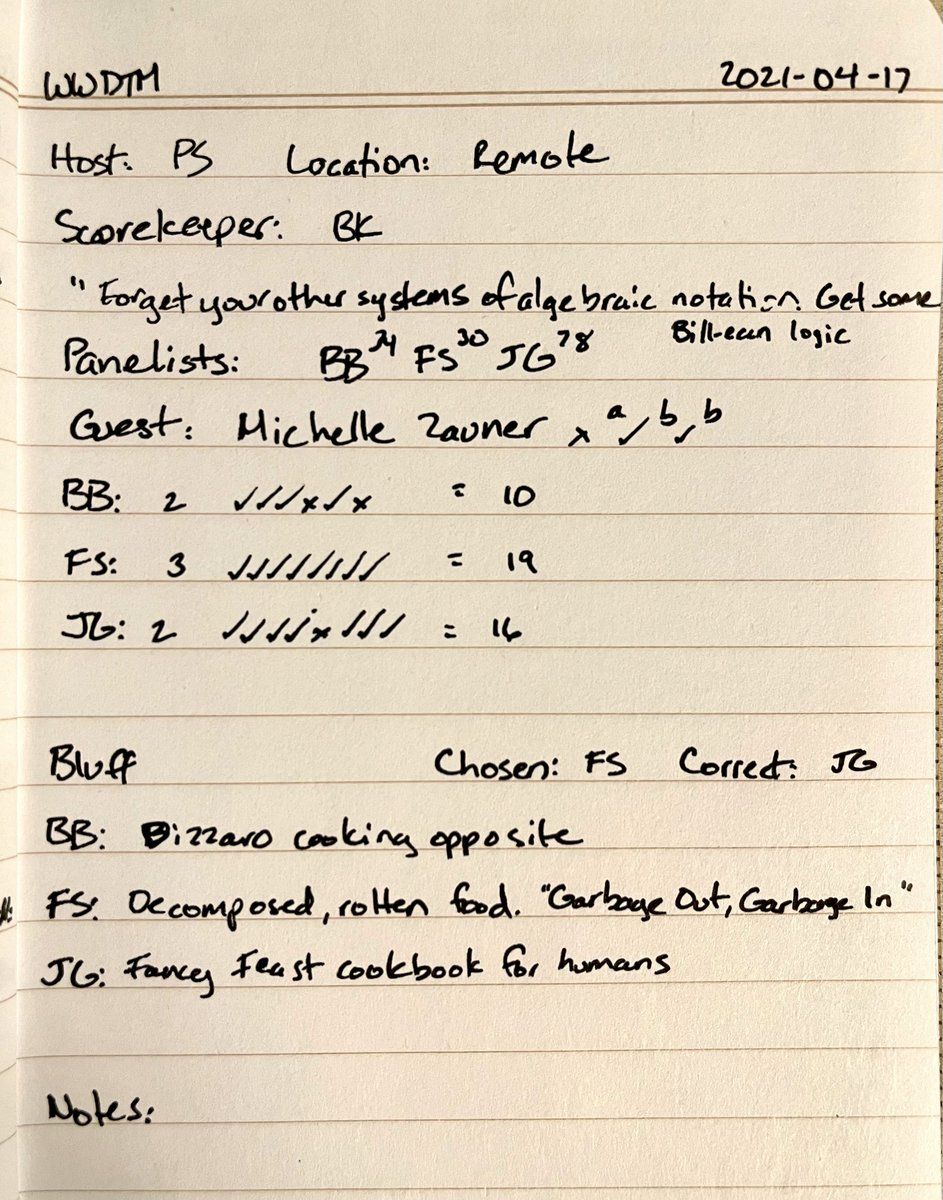 WWDTM 2021-04-17
Host: PS Location: Remote
Scorekeeper: BK
"Forget your other systems of algebraic notation. Get some
Bill-ean logic
Panelists: BB FS³⁰ JG⁷⁸
Guest: Michelle Zauner x ᵃ ✓ ᵇ ✓ ᵇ
BB: 2 ✓✓✓x✓x = 10
FS: 3 ✓✓✓✓✓✓✓✓ = 19
JG: 2 ✓✓✓✓x✓✓✓ = 16
Bluff Chosen: FS Correct: JG
BB: Bizzaro cooking opposite
FS: Decomposed, rotten food. "Garbage Out, Garbage In"
JG: Fancy Feast cookbook for humans
Notes: